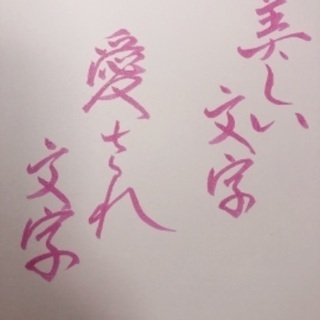 美しい
文字
愛され
文字